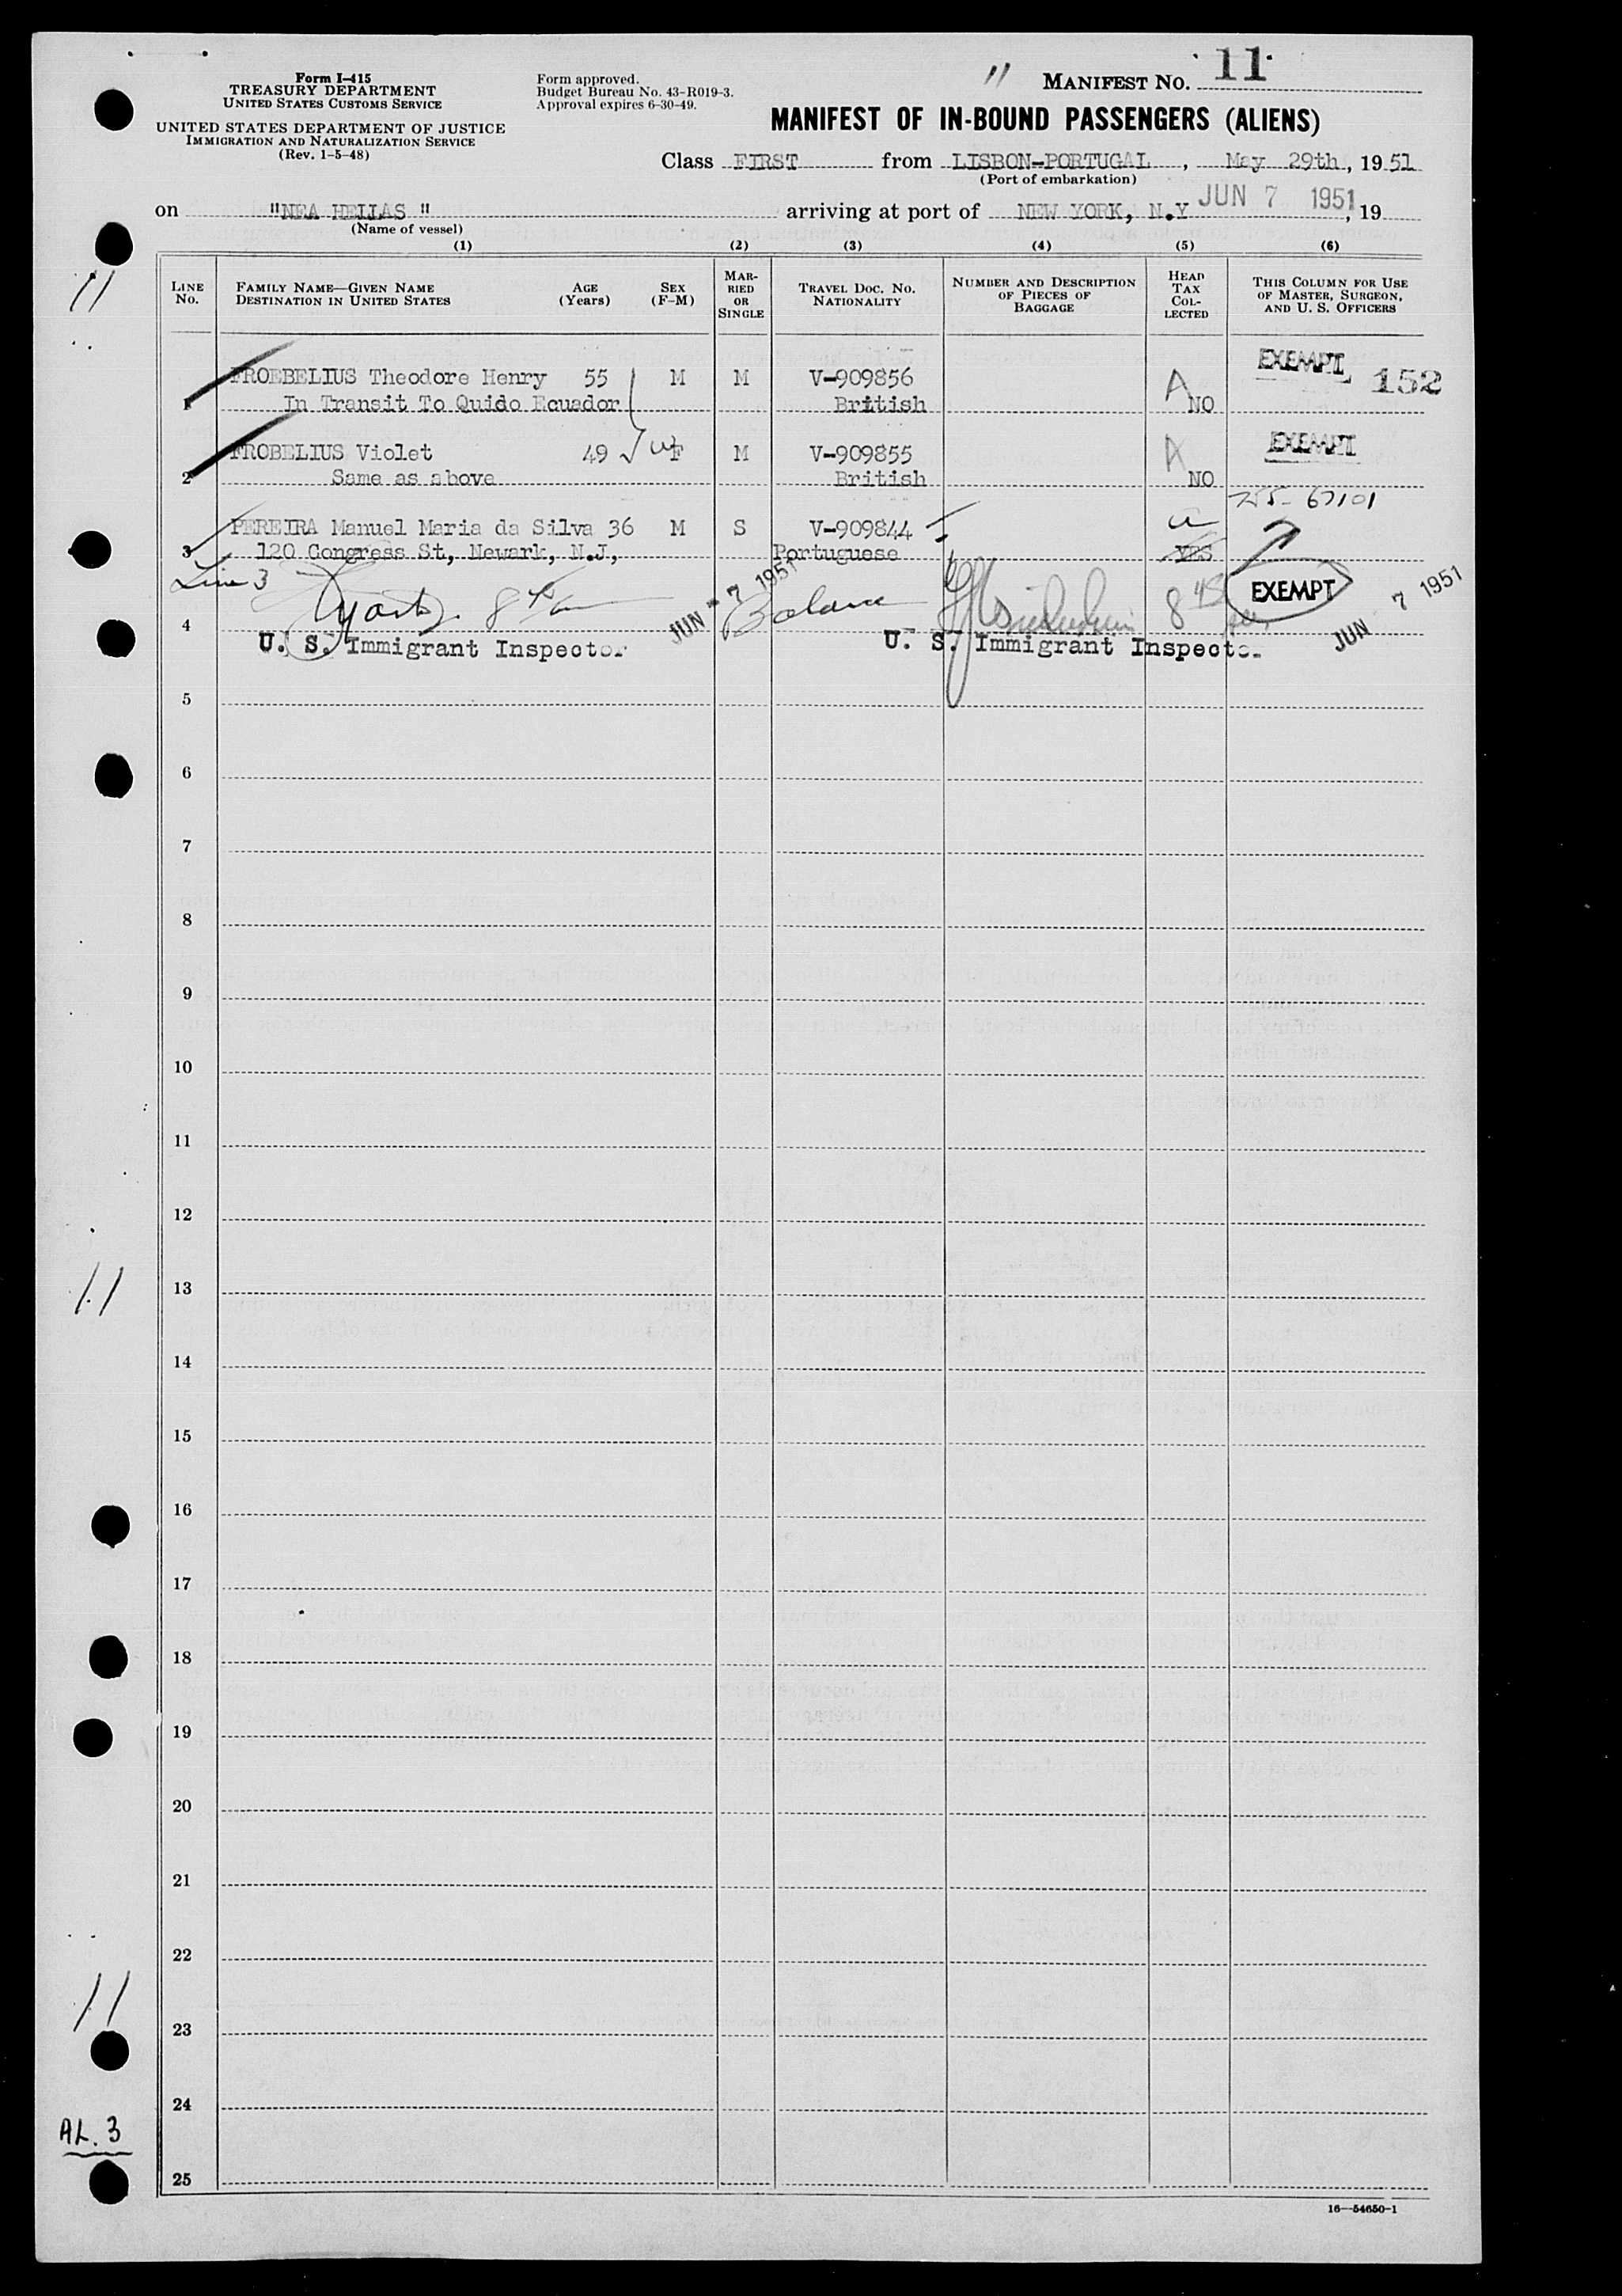 Form I-415
TREASURY DEPARTMENT
UNITED STATES CUSTOMS SERVICE
UNITED STATES DEPARTMENT OF JUSTICE
IMMIGRATION AND NATURALIZATION SERVICE
(Rev. 1-5-48)
Form approved.
Budget Bureau No. 43-R019-3.
Approval expires 6-30-49.
11 MANIFEST NO. 11
MANIFEST OF IN-BOUND PASSENGERS (ALIENS)
Class FIRST from LISBON-PORTUGAL, May 29th, 1951
(Port of embarkation)
on "NEA HELLAS " arriving at port of NEW YORK, N.Y JUN 7 1951, 19
(Name of vessel)
(1) (2) (3) (4) (5) (6)
LINE NO.
FAMILY NAME—GIVEN NAME
DESTINATION IN UNITED STATES
AGE (Years)
SEX (F-M)
MARRIED OR SINGLE
TRAVEL DOC. NO.
NATIONALITY
NUMBER AND DESCRIPTION OF PIECES OF BAGGAGE
HEAD TAX COLLECTED
THIS COLUMN FOR USE OF MASTER, SURGEON, AND U. S. OFFICERS
11
FROEBELIUS Theodore Henry 55 M M V-909856 A EXEMPT 152
1 In Transit To Quido Ecuador British NO
FROBELIUS Violet 49 F M V-909855 A EXEMPT
2 Same as above British NO
755-67101
PEREIRA Manuel Maria da Silva 36 M S V-909844
3 120 Congress St, Newark, N.J, Portuguese YES
Line 3 JUN - 7 1951 Balance 8 45 EXEMPT JUN 7 1951
4
U. S. Immigrant Inspector U. S. Immigrant Inspector
5
6
7
8
9
10
11
12
13
11
14
15
16
17
18
19
20
21
22
11
23
24
AL. 3
25
16—54650-1